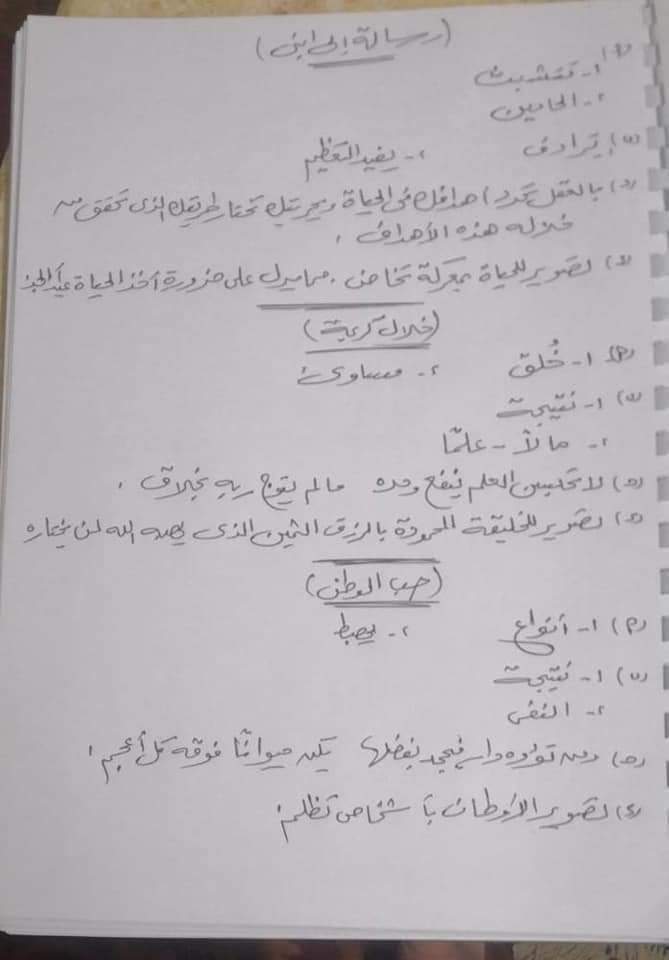 (رسالة إلى ابنى)
(أ) ١- تشبث
٢- الحامين
(ب) ١- ترادف ٢- يفيد التعظيم
(جـ) بالعقل تحدد أهدافك فى الحياة وبحريتك تختار طريقك الذى تحقق من
خلاله هذه الأهداف .
(د) تصوير للحياة بمعركة تخاض . مما يدل على ضرورة أخذ الحياة
(خلال كريمة)
(أ) ١- خُلق ٢- مساوئ
(ب) ١- نتيجة
٢- مالاً - علمًا
(جـ) لا تحسبن العلم ينفع وحده مالم يتوج ربه بخلاق .
(د) تصوير للخليقة المحمودة بالرزق الثمين الذى يهبه الله لمن يختاره
(حب الوطن)
(أ) ١- أنواع ٢- يهبط
(ب) ١- نتيجة
٢- النفى
(جـ) ومن تؤوه دار فيجحد بفضلها يكن حيوانًا فوقه كل أعجم .
(د) تصوير الأوطان بأشخاص تظلم .